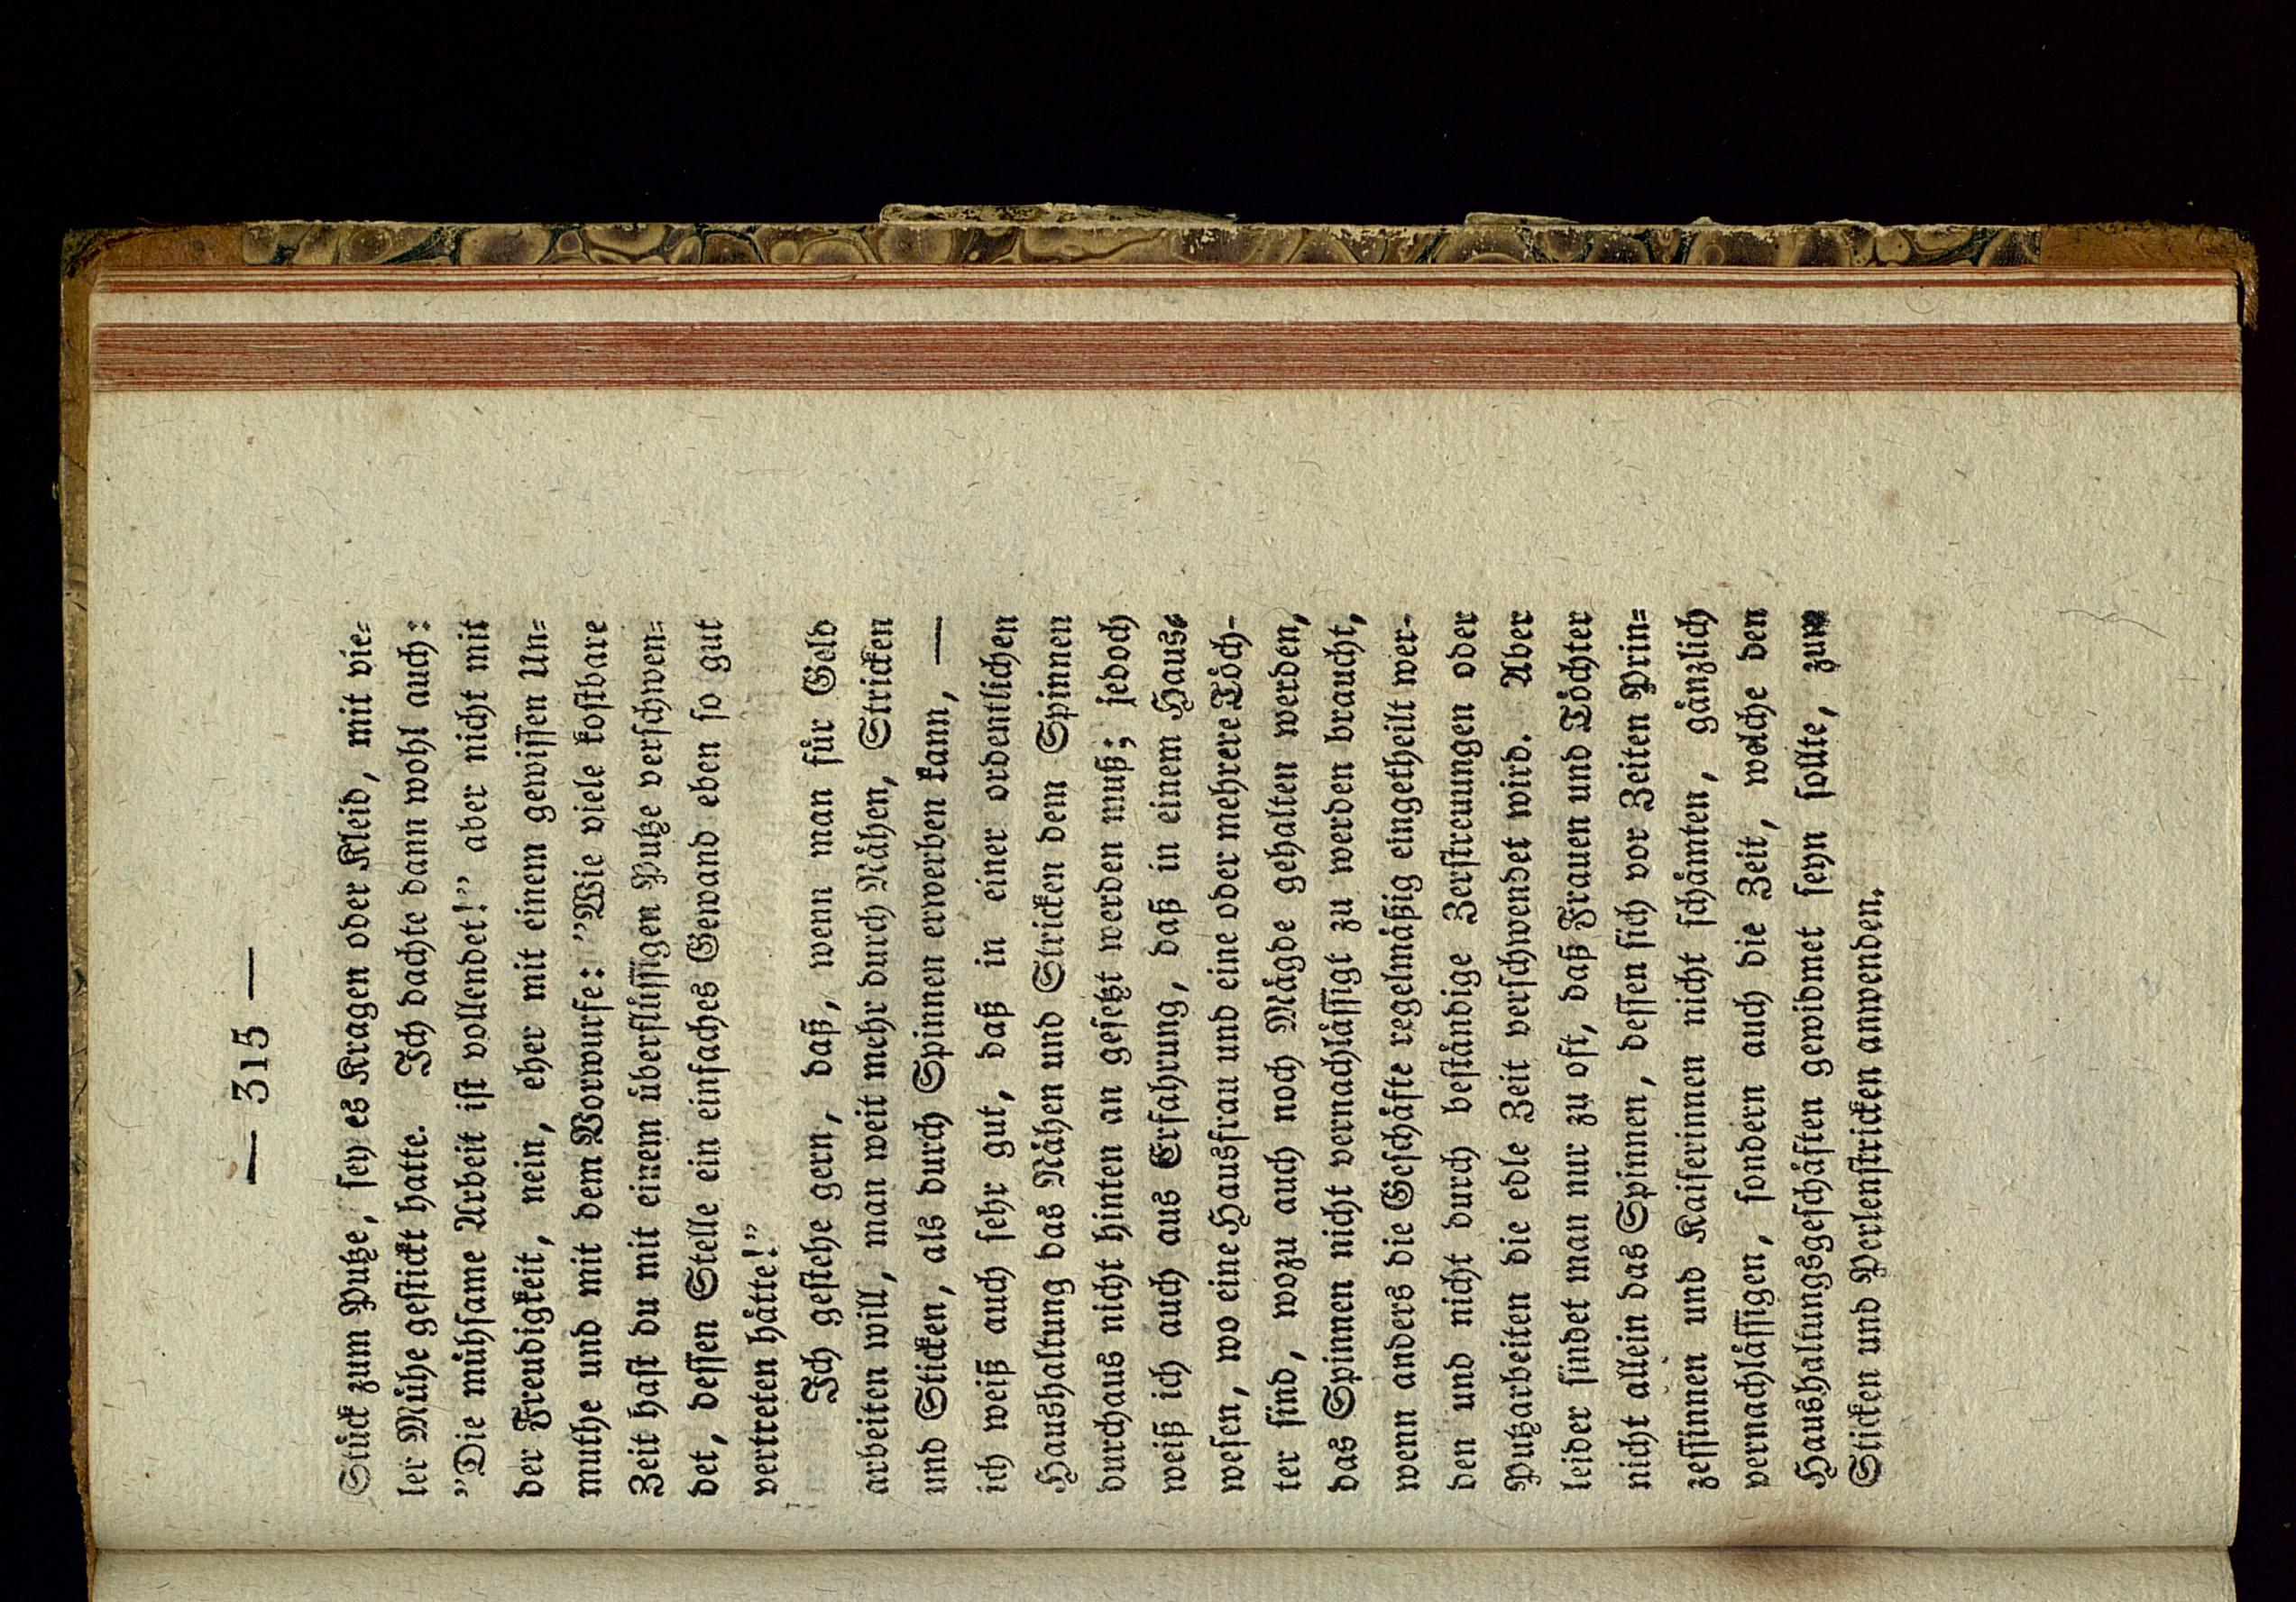 — 315 —
Stück zum Putze, sey es Kragen oder Kleid, mit vie=
ler Mühe gestickt hatte. Ich dachte dann wohl auch:
”Die mühsame Arbeit ist vollendet!” aber nicht mit
der Freudigkeit, nein, eher mit einem gewissen Un=
muthe und mit dem Vorwurfe: ”Wie viele kostbare
Zeit hast du mit einem überflüssigen Putze verschwen=
det, dessen Stelle ein einfaches Gewand eben so gut
vertreten hätte!”
Ich gestehe gern, daß, wenn man für Geld
arbeiten will, man weit mehr durch Nähen, Stricken
und Sticken, als durch Spinnen erwerben kann, —
ich weiß auch sehr gut, daß in einer ordentlichen
Haushaltung das Nähen und Stricken dem Spinnen
durchaus nicht hinten an gesetzt werden muß; jedoch
weiß ich auch aus Erfahrung, daß in einem Haus=
wesen, wo eine Hausfrau und eine oder mehrere Töch-
ter sind, wozu auch noch Mägde gehalten werden,
das Spinnen nicht vernachlässigt zu werden braucht,
wenn anders die Geschäfte regelmäßig eingetheilt wer-
den und nicht durch beständige Zerstreuungen oder
Putzarbeiten die edle Zeit verschwendet wird. Aber
leider findet man nur zu oft, daß Frauen und Töchter
nicht allein das Spinnen, dessen sich vor Zeiten Prin=
zessinnen und Kaiserinnen nicht schämten, gänzlich
vernachlässigen, sondern auch die Zeit, welche den
Haushaltungsgeschäften gewidmet seyn sollte, zum
Sticken und Perlenstricken anwenden.